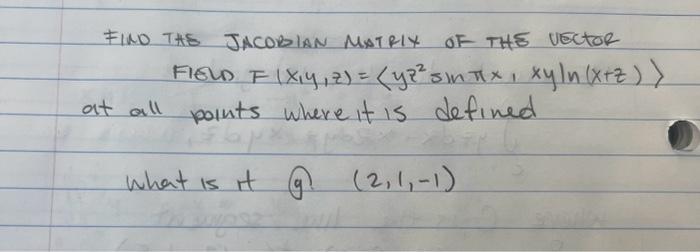 FIND THE JACOBIAN MATRIX OF THE VECTOR
FIELD F(x,y,z) = ⟨yz² sin πx, xy ln(x+z)⟩
at all points where it is defined
What is it @ (2,1,-1)